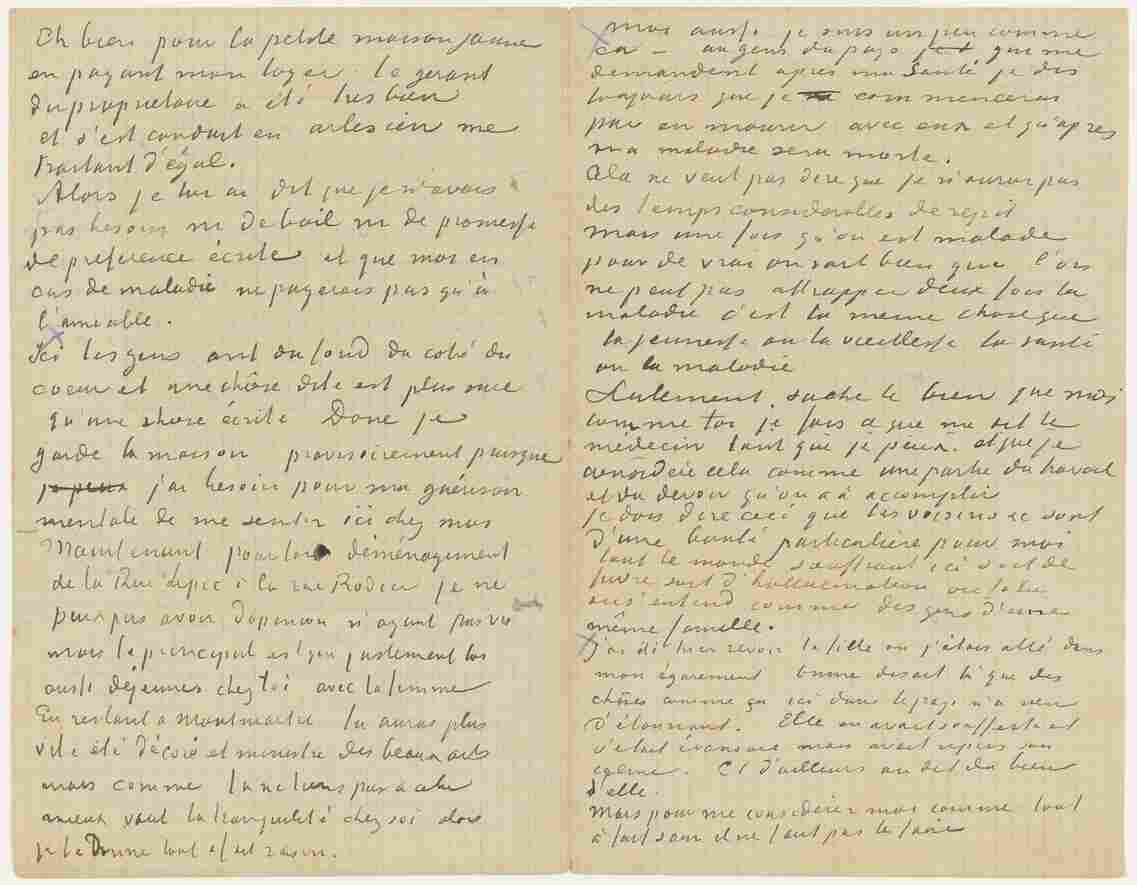 Eh bien pour la petite maison jaune
en payant mon loyer le gerant
du propriétaire a été tres bien
et s'est conduit en arlesien me
traitant d'égal.
Alors je lui ai dit que je n'avais
pas besoin ni de bail ni de promesse
de preference écrite et que moi en
cas de maladie ne payerais pas qu'à
l'amiable.
Ici les gens ont du fond du coté du
coeur et une chôse dite est plus sure
qu'une chose écrite Donc je
garde la maison provisoirement puisque
je peux j'ai besoin pour ma guérison
mentale de me sentir ici chez moi
Maintenant pour ton déménagement
de la Rue Lepic à la rue Rodier je ne
peux pas avoir d'opinion n'ayant pas vu
mais le principal est que justement toi
aussi déjeunes chez toi avec ta femme
En restant à Montmartre tu aurais plus
vite été décoré et ministre des beaux arts
mais comme tu ne tiens pas à cela
mieux vaut la tranquilité chez soi alors
je te Donne tout à fait raison.
moi aussi je suis un peu comme
ca – au gens du pays qui me
demandent apres ma santé je dis
toujours que je commencerai
par en mourir avec eux et qu'apres
ma maladie sera morte.
Cela ne veut pas dire que je n'aurai pas
des temps considerables de répit
mais une fois qu'on est malade
pour de vrai on sait bien que l'on
ne peut pas attrapper deux fois la
maladie c'est la meme chose que
la jeunesse ou la vieillesse la santé
ou la maladie
Seulement sache le bien que moi
comme toi je fais ce que me dit le
médecin tant que je peux et que je
considère cela comme une partie du travail
et du devoir qu'on a à accomplir
Je dois dire ceci que les voisins &c sont
d'une bonté particulière pour moi
tout le monde souffrant ici soit de
fievre soit d'hallucination ou folie
on s'entend comme des gens d'une
même famille.
J'ai été hier revoir la fille où j'étais allé dans
mon égarement on me disait là que des
chôses comme ça ici dans le pays n'a rien
d'étonnant. Elle en avait souffert et
s'était évanouie mais avait repris son
calme. Et d'ailleurs on dit du bien
d'elle.
Mais pour me considerer moi comme tout
à fait sain il ne faut pas le faire